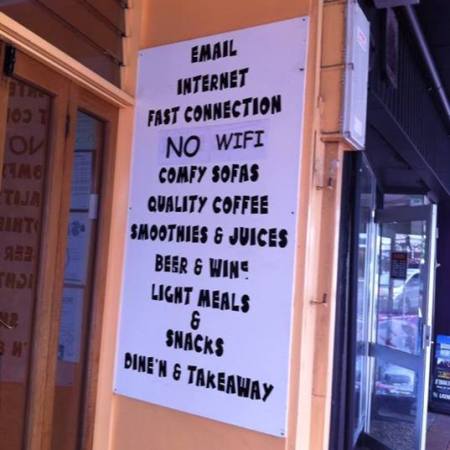 EMAIL
INTERNET
FAST CONNECTION
NO WIFI
COMFY SOFAS
QUALITY COFFEE
SMOOTHIES & JUICES
BEER & WINe
LIGHT MEALS
&
SNACKS
DINE'N & TAKEAWAY